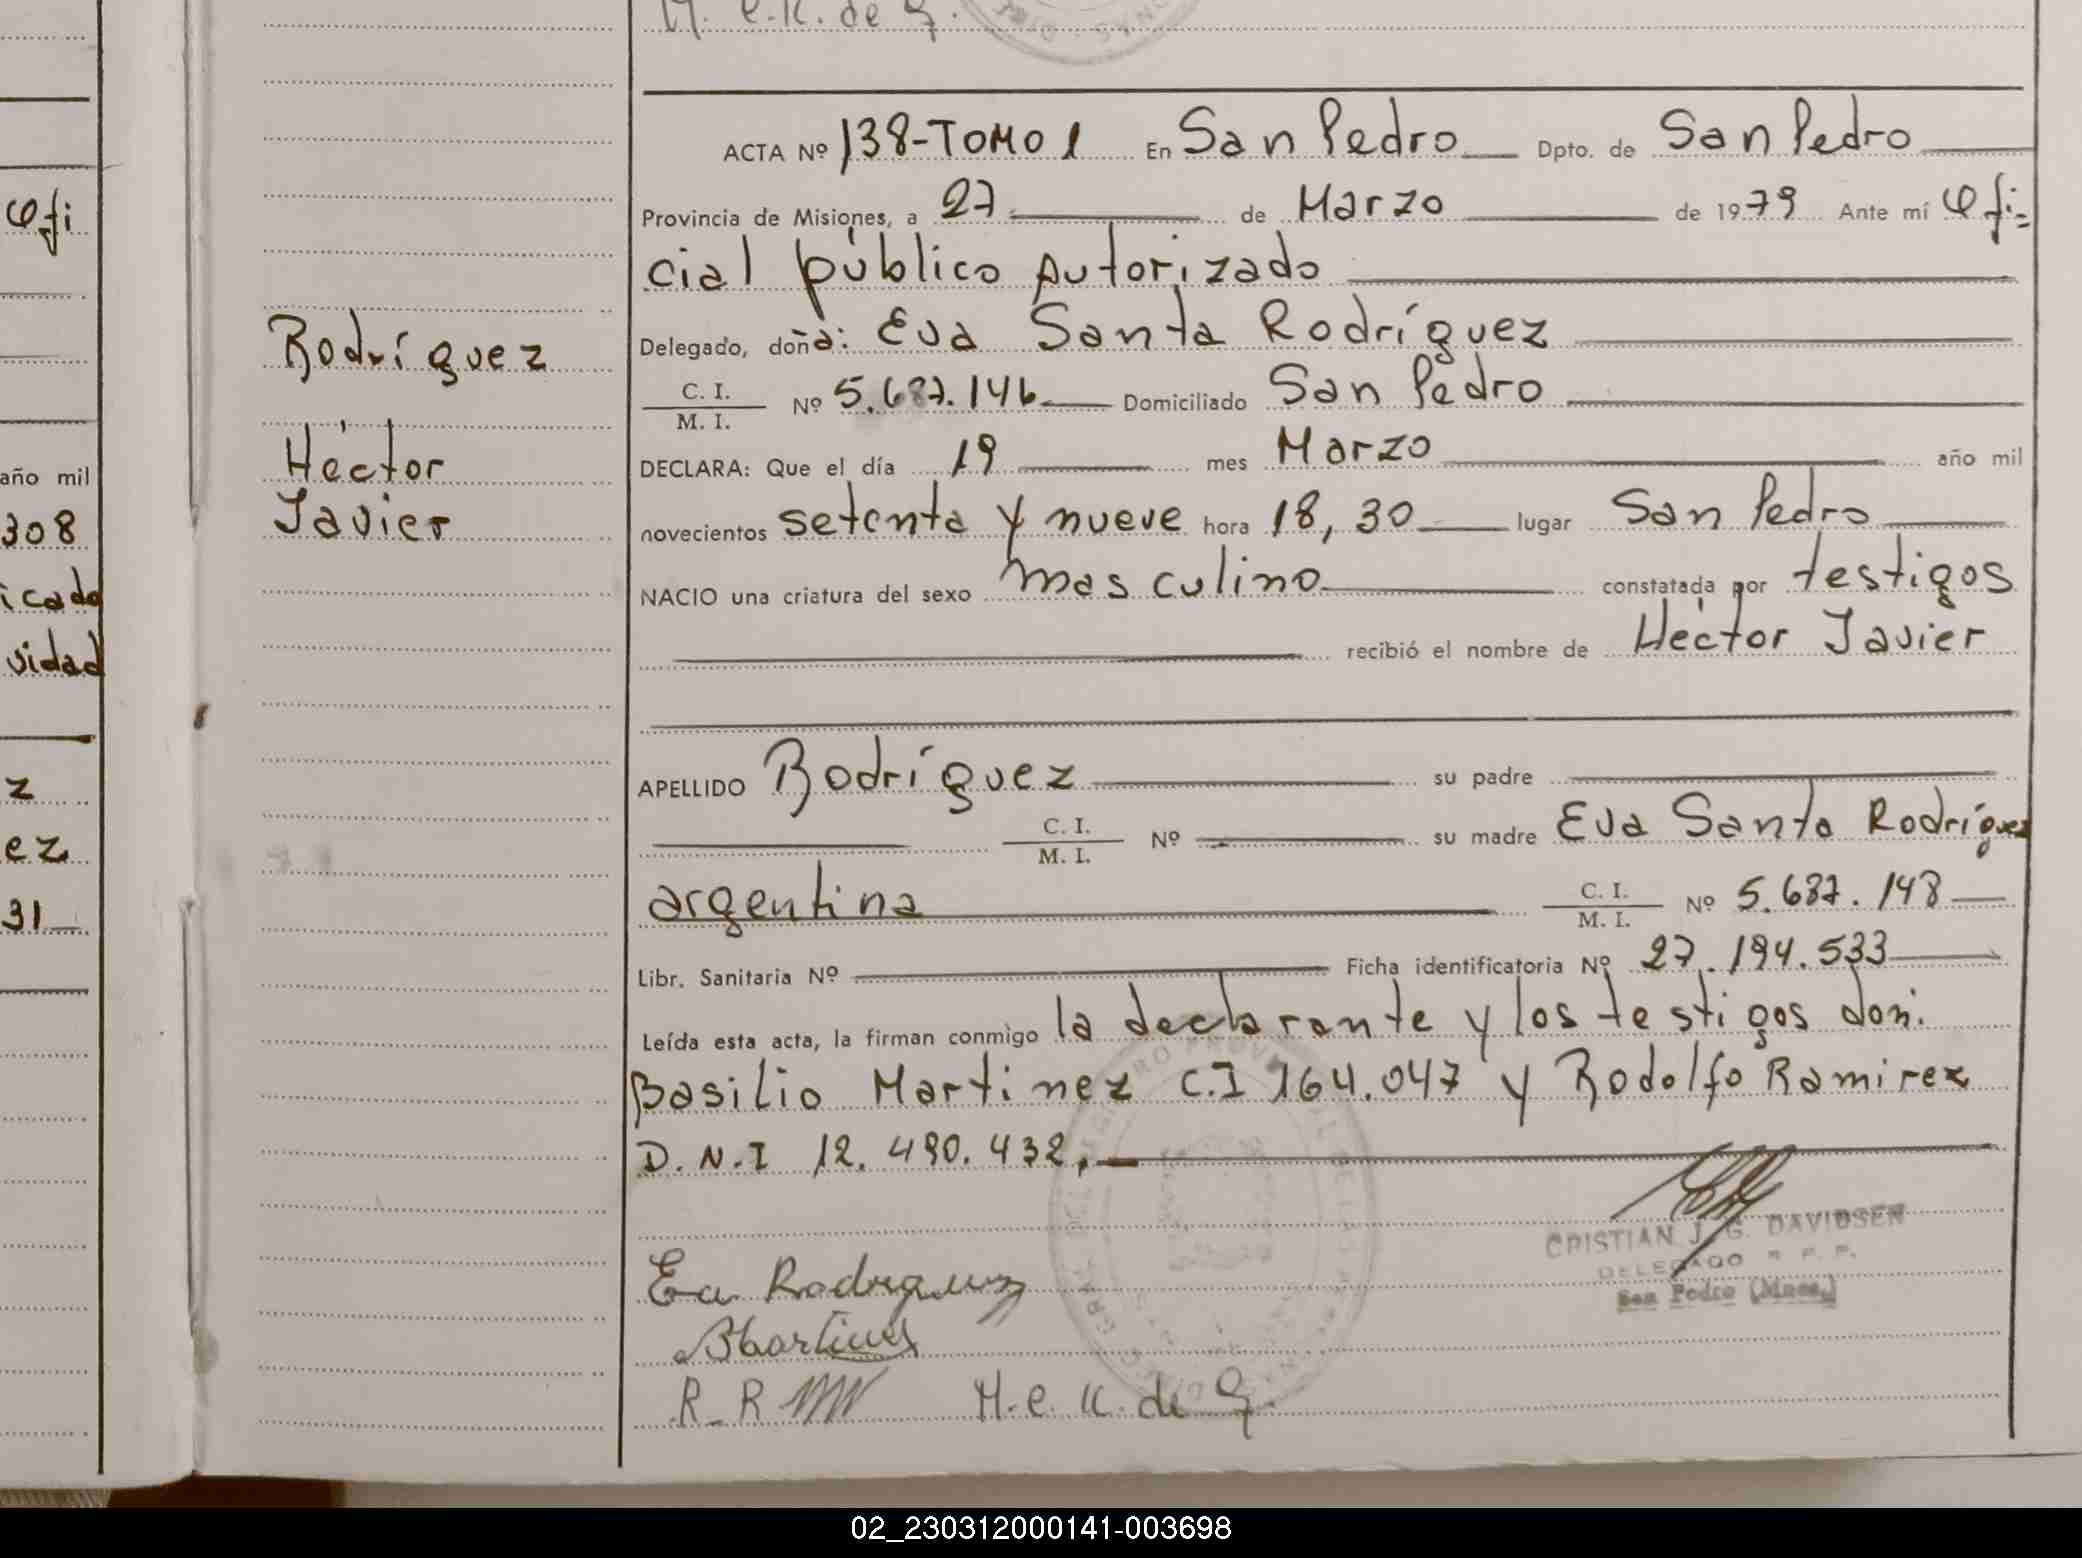 M. e. K. de G.
ACTA Nº 138-TOMO 1 En San Pedro Dpto. de San Pedro
Provincia de Misiones, a 27 de Marzo de 1979 Ante mí Ofi=
cial público Autorizado
Delegado, doña: Eva Santa Rodríguez
C. I. / M. I. Nº 5.687.146 Domiciliado San Pedro
DECLARA: Que el día 19 mes Marzo año mil
novecientos setenta y nueve hora 18,30 lugar San Pedro
NACIO una criatura del sexo masculino constatada por testigos
recibió el nombre de Héctor Javier
APELLIDO Rodríguez su padre
C. I. / M. I. Nº su madre Eva Santa Rodríguez
argentina C. I. / M. I. Nº 5.687.148
Libr. Sanitaria Nº Ficha identificatoria Nº 27.194.533
Leída esta acta, la firman conmigo la declarante y los testigos don:
Basilio Martinez C.I 164.047 y Rodolfo Ramirez
D.N.I 12.490.432.
CRISTIAN J. G. DAVIDSEN
DELEGADO R. P. P.
San Pedro (Mnes.)
Eva Rodriguez
BMartinez
R_R M. e. K. de G.
Rodríguez
Héctor
Javier
Ofi
año mil
308
icado
vidad
z
ez
31
02_230312000141-003698